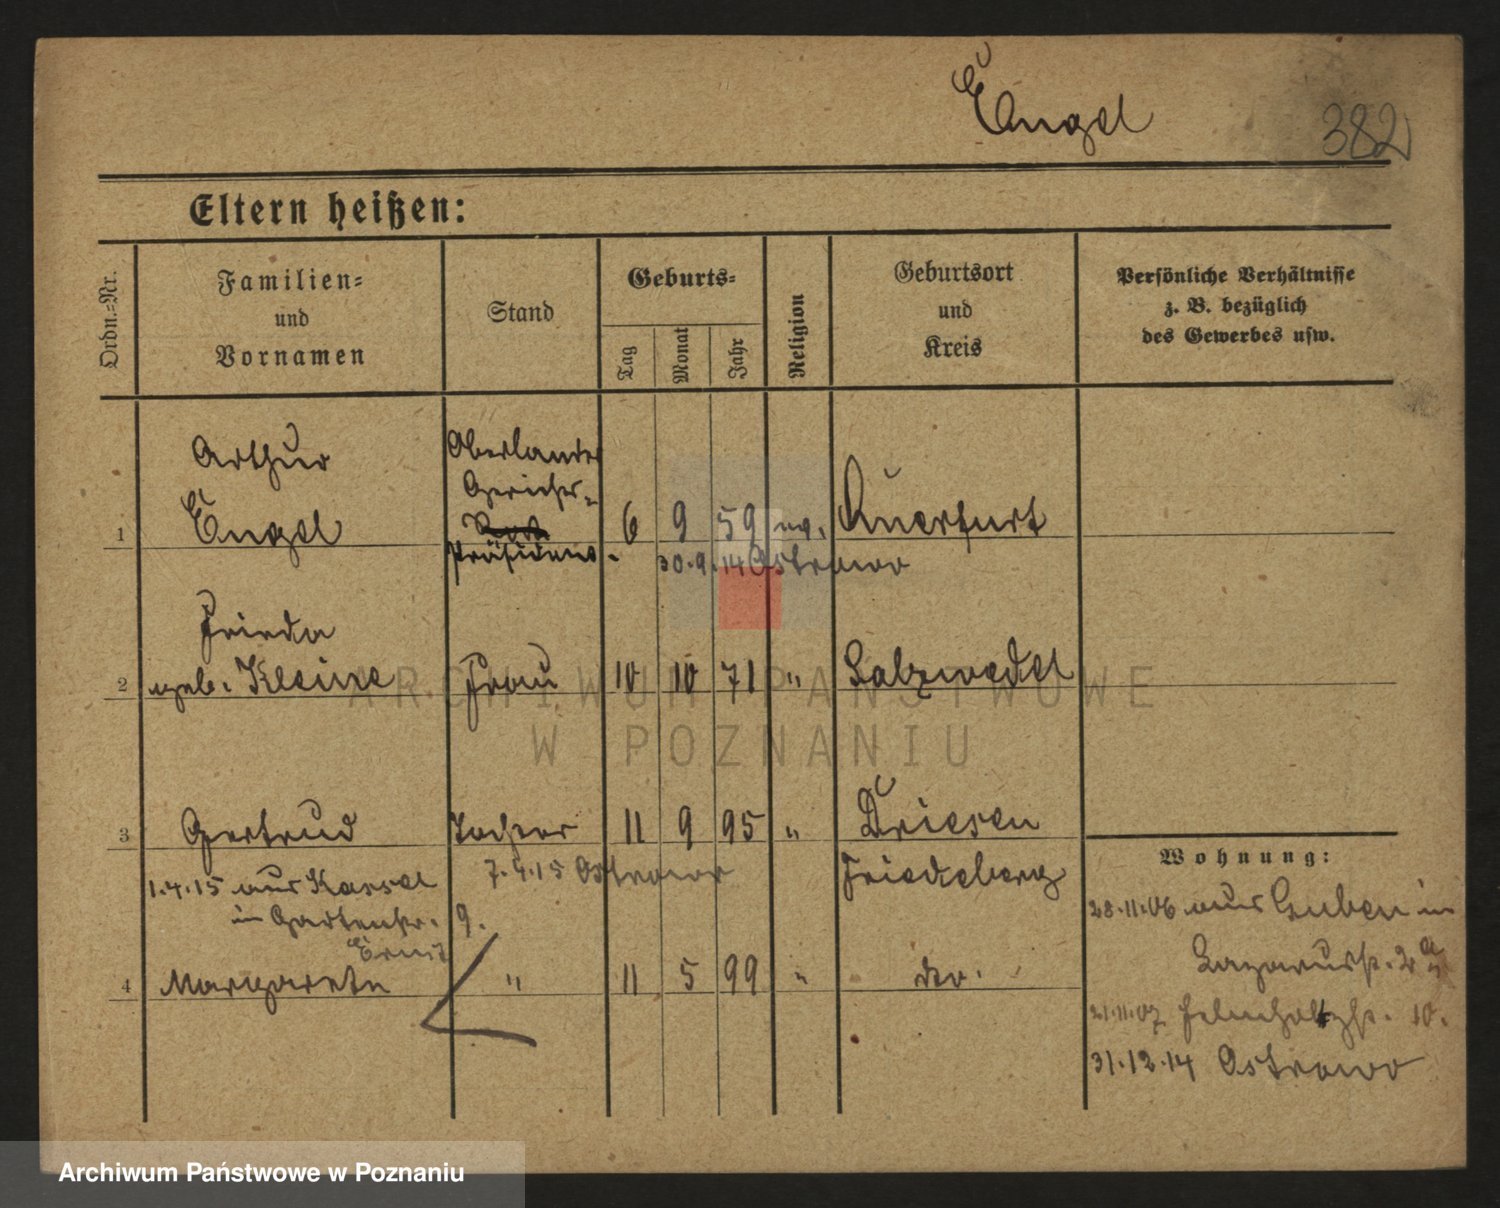 Engel
382
Eltern heißen:
Ordn.-Nr.
Familien-
und
Vornamen
Stand
Geburts-
Tag
Monat
Jahr
Religion
Geburtsort
und
Kreis
Persönliche Verhältnisse
z. B. bezüglich
des Gewerbes usw.
Arthur
Engel
Oberlandes
Gerichts-
Präsident.
1
6 9 59 ev. Querfurt
30.9.14 Ostrowo
Frieda
2 geb. Kleine Frau 10 10 71 " Salzwedel
3 Gertrud Tochter 11 9 95 " Driesen
7.4.15 Ostrowo
Friedeberg
1.4.15 aus Kassel
in Gartenstr. 9.
Ernst
4 Margarete " 11 5 99 " do.
Wohnung:
28.11.06 aus Guben in
Lazarusstr. 2a
21.11.07 Helmholtzstr. 10.
31.12.14 Ostrowo
ARCHIWUM PAŃSTWOWE
W POZNANIU
Archiwum Państwowe w Poznaniu